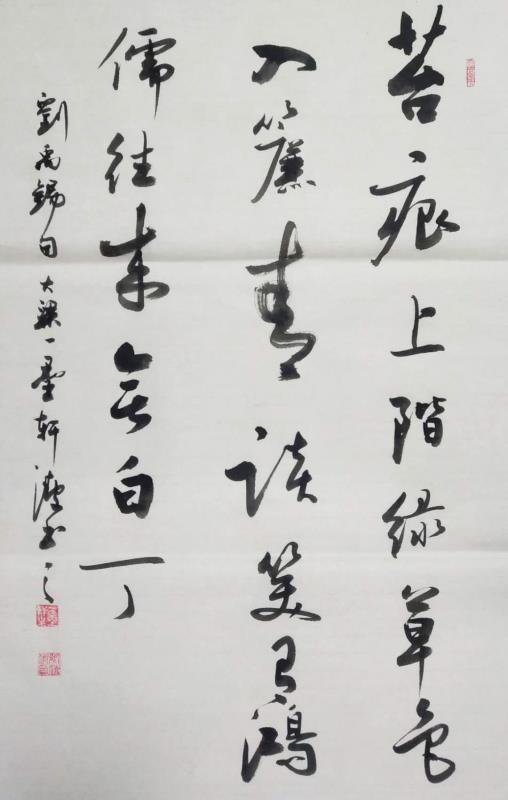 苔痕上階緑草色
入簾青談笑有鴻
儒往来無白丁
劉禹錫句大梁一墨軒
書之